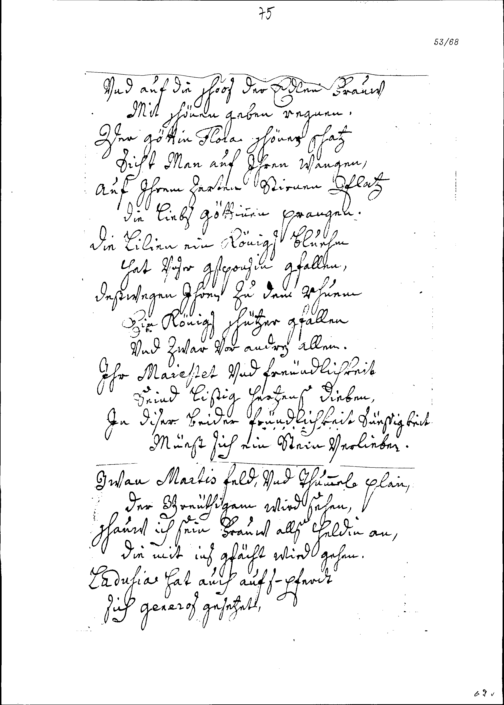 75
53/68
Und auf die schoß der Edlen Brauw
Mit schönen geben regnen.
Der göttin Flora schöner schatz
Sicht Man auf Ihren Wangen,
Auf Ihrem Zarten Stirnen Platz
die Liebs göttinen prangen.
Die Lilien ein Königs Bluehm
hat Unser gesponsin gfallen,
deßwegen Ihres zu dem Rhuem
Ein Königs schützer gfallen
Und Zwar Vor andrn allen.
Ihr Maiestet Und freündlichkeit
Seind Listig hertzens dieben,
In diser beider fründlichkeit Süessigkeit
Müest sich ein Stein Verlieben.
Iwan Martis feld, Und Thumels plain,
der Breüthigam wird sehen,
schauwt ich sein Brauwt alls heldin an,
die mit ins gfächt wird gehen.
Ladusia hat auch auffs pferdt
sich generos gesetzet,